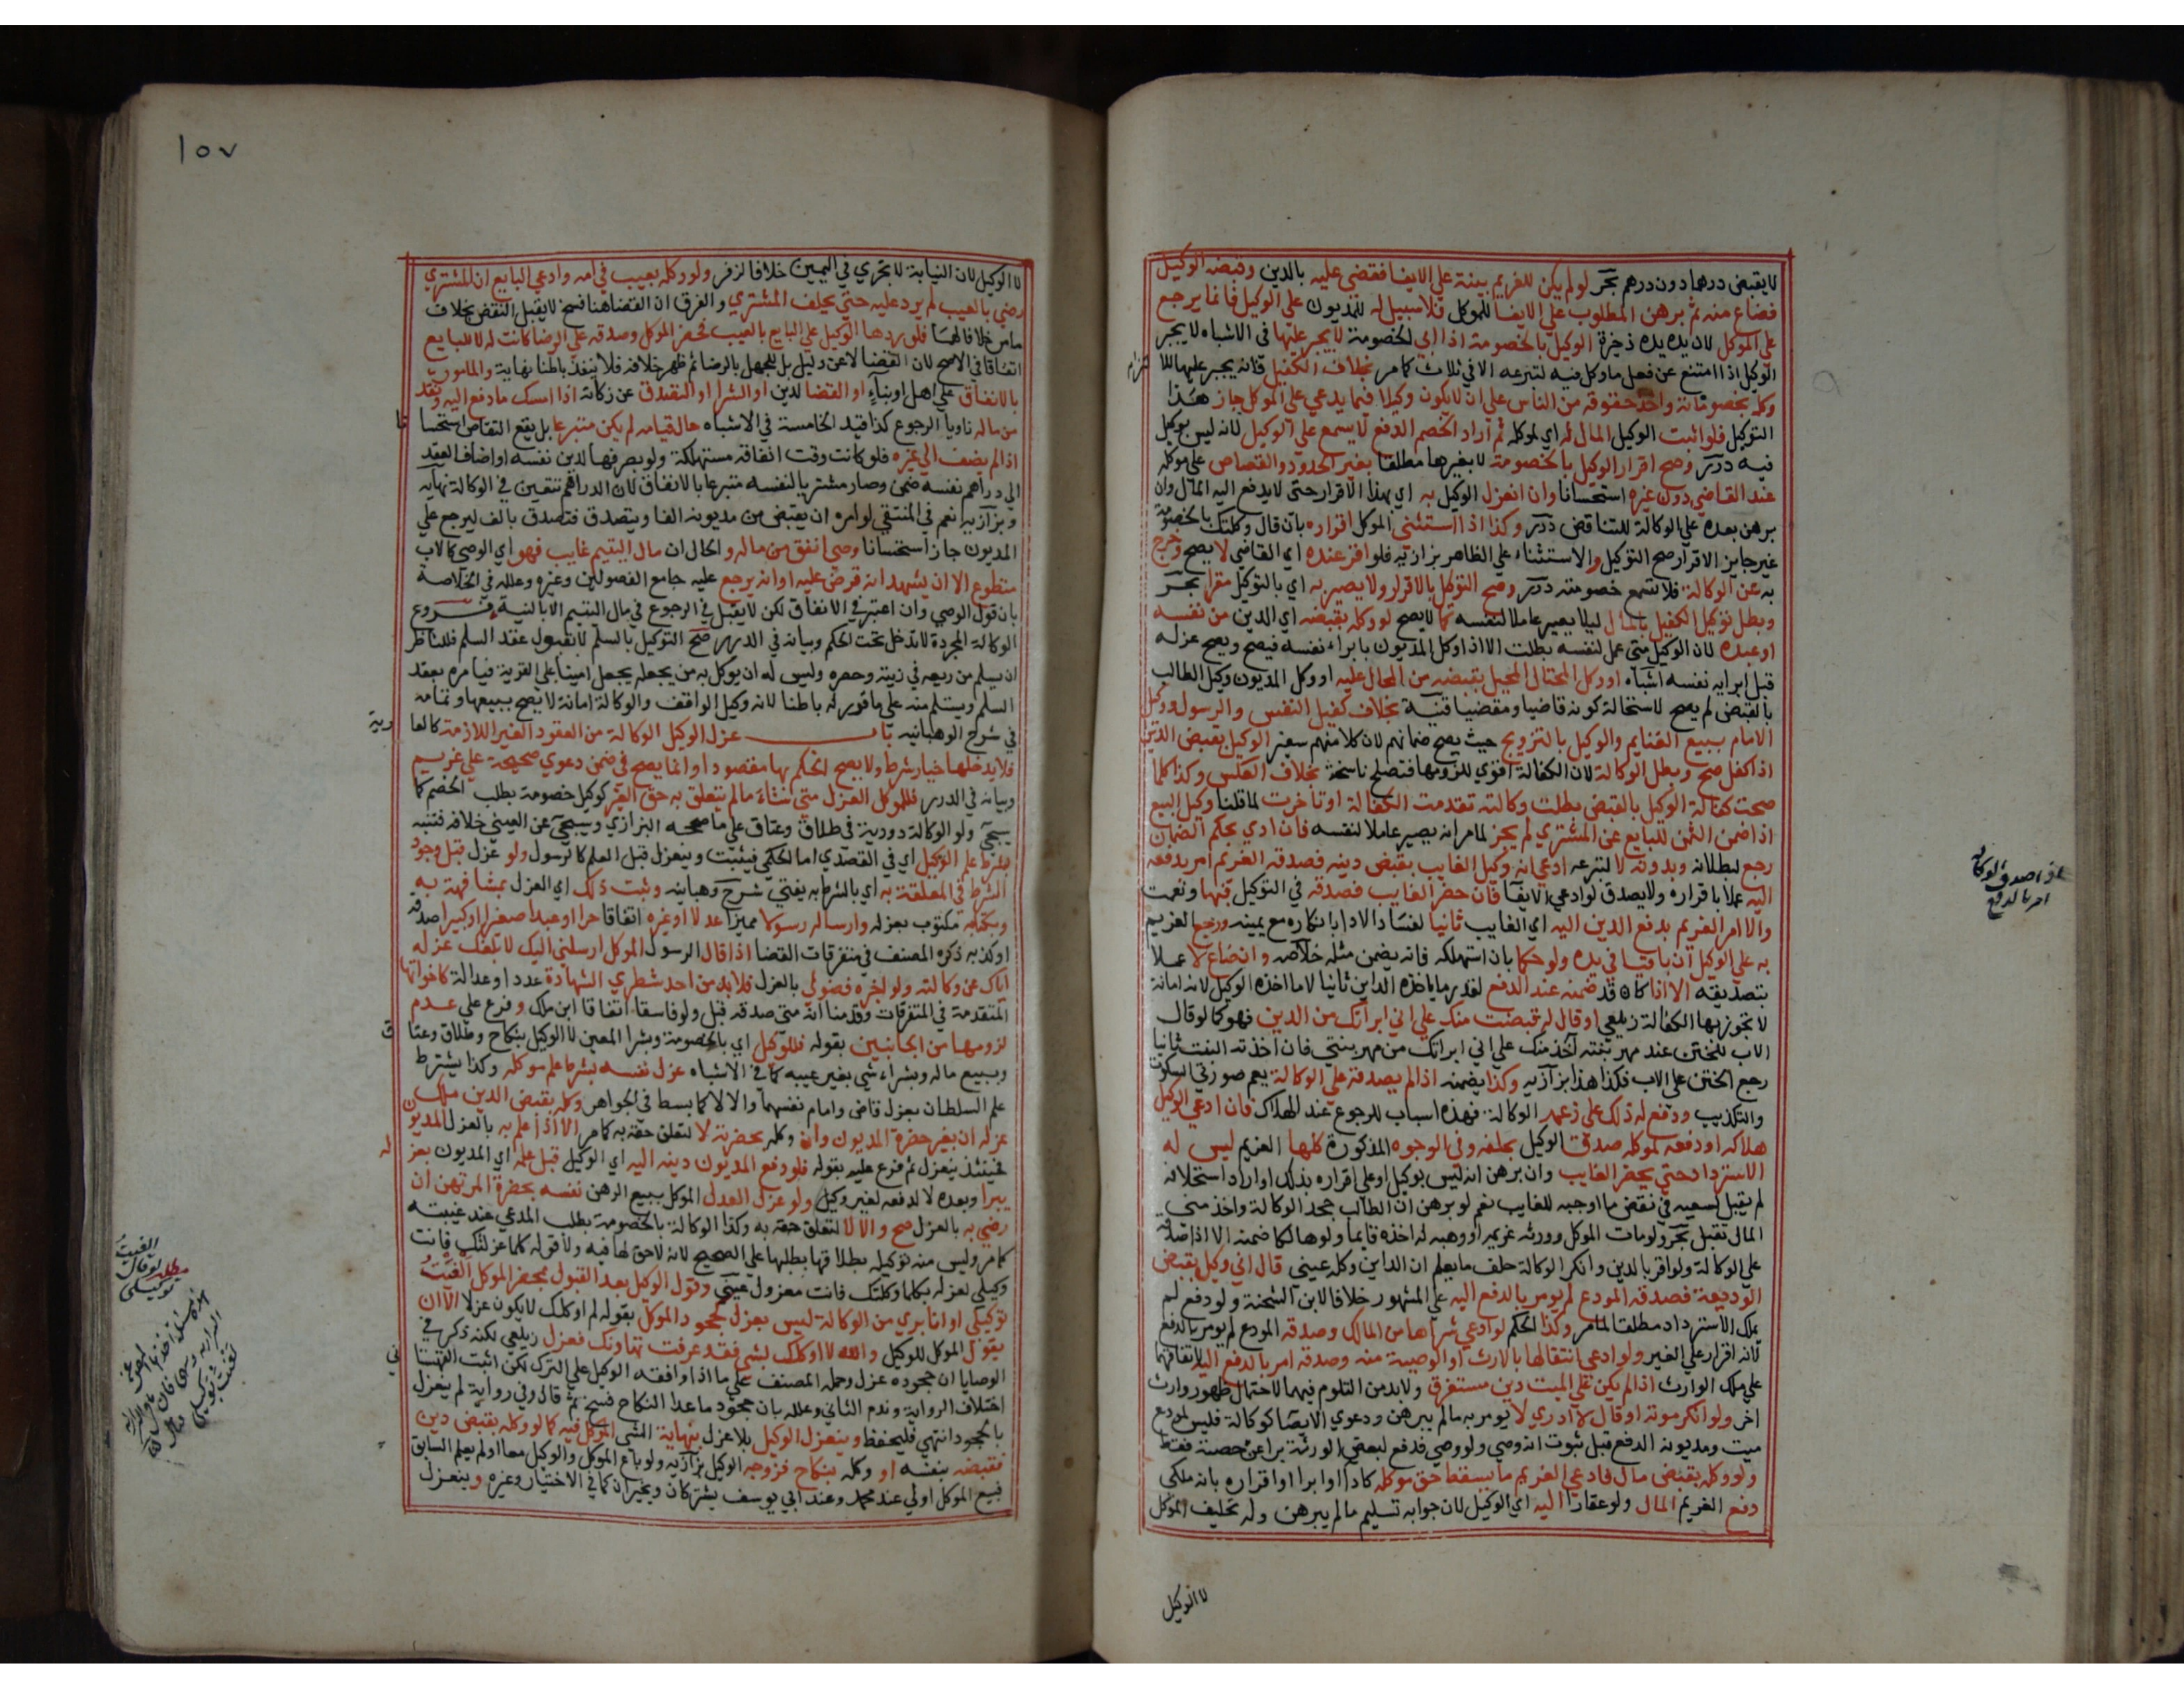 لا يقبض درهما دون درهم بحر لو لم يكن للغريم بينة على الايفا فقضى عليه بالدين وقبضه الوكيل
فضاع منه ثم برهن المطلوب على الايفا للموكل فلا سبيل له للمديون على الوكيل فانما يرجع
على الموكل لان يده يده ذخيرة الوكيل بالخصومة اذا ابى الخصومة لا يجبر عليها في الاشباه لا يجبر
الوكيل اذا امتنع عن فعل ما وكل فيه لتبرعه الا في ثلاث كما مر بخلاف الكفيل فانه يجبر عليها للا
لتزام
وكله بخصوماته واخذ حقوقه من الناس على ان لا يكون وكيلا فيما يدعي على الموكل جاز هذا
التوكيل فلو اثبت الوكيل المال له اي لموكله ثم اراد الخصم الدفع لا يسمع على الوكيل لانه ليس بوكيل
فيه درر وصح اقرار الوكيل بالخصومة لا بغيرها مطلقا بغير الحدود والقصاص على موكله
عند القاضي دون غيره استحسانا وان انعزل الوكيل به اي بهذا الاقرار حتى لا يدفع اليه المال وان
برهن بعده على الوكالة للتناقض درر وكذا اذا استثنى الموكل اقراره بان قال وكلتك بالخصومة
غير جايز الاقرار صح التوكيل والاستثناء على الظاهر بزازيه فلو اقر عنده اي القاضي لا يصح وخرج
به عن الوكالة فلا تسمع خصومته درر وصح التوكل بالاقرار ولا يصير به اي بالتوكيل مقرا بحر
وبطل توكيل الكفيل بالمال ليلا يصير عاملا لنفسه كما لا يصح لو وكله بقبضه اي الدين من نفسه
او عبده لان الوكيل متى عمل لنفسه بطلت الا اذا وكل المديون بابراء نفسه فيصح ويصح عزله
قبل ابرايه نفسه اشباه او وكل المحتال المحيل بقبضه من المحال عليه او وكل المديون وكيل الطالب
بالقبض لم يصح لاستحالة كونه قاضيا ومقضيا قنية بخلاف كفيل النفس والرسول ووكيل
الامام ببيع الغنايم والوكيل بالتزويج حيث يصح ضمانهم لان كلا منهم سفير الوكيل بقبض الدين
اذا كفل صح وبطل الوكالة لان الكفالة اقوى للزومها فتصلح ناسخة بخلاف العكس وكذا كلما
صحت كفالة الوكيل بالقبض بطلت وكالته تقدمت الكفالة او تاخرت لما قلنا وكيل البيع
اذا ضمن الثمن للبايع عن المشتري لم يجز لما مر انه يصير عاملا لنفسه فان ادى بحكم الضمان
رجع لبطلانه وبدونه لا لتبرعه ادعى انه وكيل الغايب بقبض دينه فصدقه الغريم امر بدفعه
اليه عملا باقراره ولا يصدق لو ادعى الايفا فان حضر الغايب فصدقه في التوكيل فبها ونعمت
والا امر الغريم بدفع الدين اليه اي الغايب ثانيا لفساد الادا بانكاره مع يمينه ورجع الغريم
به على الوكيل ان باقيا في يده ولو حكما بان استهلكه فانه يضمن مثله خلاصه وان ضاع لا عملا
بتصديقه الا اذا كان قد ضمنه عند الدفع لقدر ما ياخذه الداين ثانيا لا ما اخذه الوكيل لانه امانة
لا تجوز بها الكفالة زيلعي او قال له قبضت منك على اني ابراتك من الدين فهو كما لو قال
الاب للختن عند مهر بنته آخذ منك على اني ابراتك من مهر بنتي فان اخذته البنت ثانيا
رجع الختن على الاب فكذا هذا بزازيه وكذا يضمنه اذا لم يصدقه على الوكالة يعم صورتي السكوت
والتكذيب ودفع له ذلك على زعمه الوكالة فهذه اسباب للرجوع عند الهلاك فان ادعى الوكيل
هلاكه او دفعه لموكله صدق الوكيل بحلفه وفي الوجوه المذكورة كلها الغريم ليس له
الاسترداد حتى يحضر الغايب وان برهن انه ليس بوكيل او على اقراره بذلك او اراد استحلافه
لم يقبل لسعيه في نقض ما اوجبه للغايب نعم لو برهن ان الطالب جحد الوكالة واخذ مني
المال تقبل بحر ولو مات الموكل وورثه غريمه او وهبه له اخذه قايما ولو هالكا ضمنه الا اذا صدقه
على الوكالة ولو اقر بالدين وانكر الوكالة حلف ما يعلم ان الداين وكله عيني قال اني وكيل بقبض
الوديعة فصدقه المودع لم يومر بالدفع اليه على المشهور خلافا لابن الشحنة ولو دفع لم
يملك الاسترداد مطلقا لما مر وكذا الحكم لو ادعى شراها من المالك وصدقه المودع لم يومر بالدفع
لانه اقرار على الغير ولو ادعى انتقالها بالارث او الوصية منه وصدقه امر بالدفع اليه لاتفاقهما
على ملك الوارث اذا لم يكن على الميت دين مستغرق ولا بد من التلوم فيهما لاحتمال ظهور وارث
اخر ولو انكر موته او قال لا ادري لا يومر به ما لم يبرهن ودعوى الايصا كوكالة فليس لمودع
ميت ومديونه الدفع قبل ثبوت انه وصي ولو وصي فدفع لبعض الورثة برا عن حصته فقط
ولو وكله بقبض مال فادعى الغريم ما يسقط حق موكله كادا او ابرا او اقراره بانه ملكي
دفع الغريم المال ولو عقارا اليه اي الوكيل لان جوابه تسليم ما لم يبرهن وله تحليف الموكل
لا الوكيل
اذا صدق الوكالة
امر بالدفع
١٥٧
لا الوكيل لان النيابة لا تجري في اليمين خلافا لزفر ولو وكله بعيب في امه وادعى البايع ان المشتري
رضي بالعيب لم يرد عليه حتى يحلف المشتري والفرق ان القضا هنا فسخ لا يقبل النقض بخلاف
ما مر خلافا لهما فلو ردها الوكيل على البايع بالعيب فحضر الموكل وصدقه على الرضا كانت له لا للبايع
اتفاقا في الاصح لان القضا لا عن دليل بل للجهل بالرضا ثم ظهر خلافه فلا ينفذ باطنا نهاية والمامور
بالانفاق على اهل او بناء او القضا لدين او الشرا او التصدق عن زكاة اذا امسك ما دفع اليه ونقد
من ماله ناويا الرجوع كذا قيد الخامسة في الاشباه حال قيامه لم يكن متبرعا بل يقع التقاص استحسا
نا
اذا لم يضف الى غيره فلو كانت وقت انفاقه مستهلكة ولو بصرفها لدين نفسه او اضاف العقد
الى دراهم نفسه ضمن وصار مشتريا لنفسه متبرعا بالانفاق لان الدراهم تتعين في الوكالة نهايه
وبزازيه نعم في المنتقى لو امره ان يقبض من مديونه الفا ويتصدق فتصدق بالف ليرجع على
المديون جاز استحسانا وصي انفق من ماله والحال ان مال اليتيم غايب فهو اي الوصي كالاب
متطوع الا ان يشهد انه قرض عليه او انه يرجع عليه جامع الفصولين وغيره وعلله في الخلاصة
بان قول الوصي وان اعتبر في الانفاق لكن لا يقبل في الرجوع في مال اليتيم الا بالبينة فروع
الوكالة المجردة لا تدخل تحت الحكم وبيانه في الدرر صح التوكيل بالسلم لا بقبول عقد السلم فللناظر
ان يسلم من ريعه في زيته وحصره وليس له ان يوكل به من يجعله يجعل امينا على القرية فيامره بعقد
السلم ويستلم منه على ما قرر له باطنا لانه وكيل الواقف والوكالة امانة لا يصح بيعها وتمامه
في شرح الوهبانيه باب عزل الوكيل الوكالة من العقود الغير اللازمة كالعا
رية
فلا يدخلها خيار شرط ولا يصح الحكم بها مقصودا وانما يصح في ضمن دعوى صحيحة على غريم
وبيانه في الدرر فللموكل العزل متى شاء ما لم يتعلق به حق الغير كوكيل خصومة بطلب الخصم كما
سيجي ولو الوكالة دورية في طلاق وعتاق على ما صححه البزازي وسيجي عن العيني خلافه فتنبه
بشرط علم الوكيل اي في القصدي اما الحكمي فيثبت وينعزل قبل العلم كالرسول ولو عزل قبل وجود
الشرط في المعلقة به اي بالشرط به يفتى شرح وهبانيه وثبت ذلك اي العزل بمشافهة به
وبكتابة مكتوب بعزله وارساله رسولا مميزا عدلا او غيره اتفاقا حرا او عبدا صغيرا او كبيرا صدقه
او كذبه ذكره المصنف في متفرقات القضا اذا قال الرسول الموكل ارسلني اليك لابلغك عزله
اياك عن وكالته ولو اخبره فضولي بالعزل فلا بد من احد شطري الشهادة عددا او عدالة كاخواتها
المتقدمة في المتفرقات وقدمنا انه متى صدقه قبل ولو فاسقا اتفاقا ابن ملك وفرع على عدم
لزومها من الجانبين بقوله فللوكيل اي بالخصومة وبشرا المعين لا الوكيل بنكاح وطلاق وعتا
ق
وببيع ماله وبشراء شي بغير عيبه كما في الاشباه عزل نفسه بشرط علم موكله وكذا يشترط
علم السلطان بعزل قاض وامام نفسهما والا لا كما بسط في الجواهر وكله بقبض الدين ملك
عزله ان بغير حضرة المديون وان وكله بحضرته لا لتعلق حقه به كما مر الا اذا علم به بالعزل المديون
فحينئذ ينعزل ثم فرع عليه بقوله فلو دفع المديون دينه اليه اي الوكيل قبل علمه اي المديون بعز
له
يبرا وبعده لا لدفعه لغير وكيل ولو عزل العدل الموكل ببيع الرهن نفسه بحضرة المرتهن ان
رضي به بالعزل صح والا لا لتعلق حقه به وكذا الوكالة بالخصومة بطلب المدعي عند غيبته
كما مر وليس منه توكيله بطلاقها بطلبها على الصحيح لانه لا حق لها فيه ولا قوله كلما عزلتك فانت
وكيلي لعزله بكلما وكلتك فانت معزول عيني وقول الوكيل بعد القبول بمحضر الموكل الغيت
توكيلي او انا بري من الوكالة ليس بعزل كجحود الموكل بقوله لم اوكلك لا يكون عزلا الا ان
يقول الموكل للوكيل والله لا اوكلك بشي فقد عرفت تهاونك فعزل زيلعي لكنه ذكر في
الوصايا ان جحوده عزل وحمله المصنف على ما اذا وافقه الوكيل على الترك لكن اثبت القهستا
ني
اختلاف الرواية وقدم الثاني وعلله بان جحود ما عدا النكاح فسخ ثم قال وفي رواية لم ينعزل
بالجحود انتهى فليحفظ وينعزل الوكيل بلا عزل بنهاية الشي الموكل فيه كما لو وكله بقبض دين
فقبضه بنفسه او وكله بنكاح فزوجه الوكيل بزازيه ولو باع الموكل والوكيل معا او لم يعلم السابق
فبيع الموكل اولى عند محمد وعند ابي يوسف يشتركان ويخيران كما في الاختيار وغيره وينعزل
مطلب
لو قال
الغيت
توكيلي